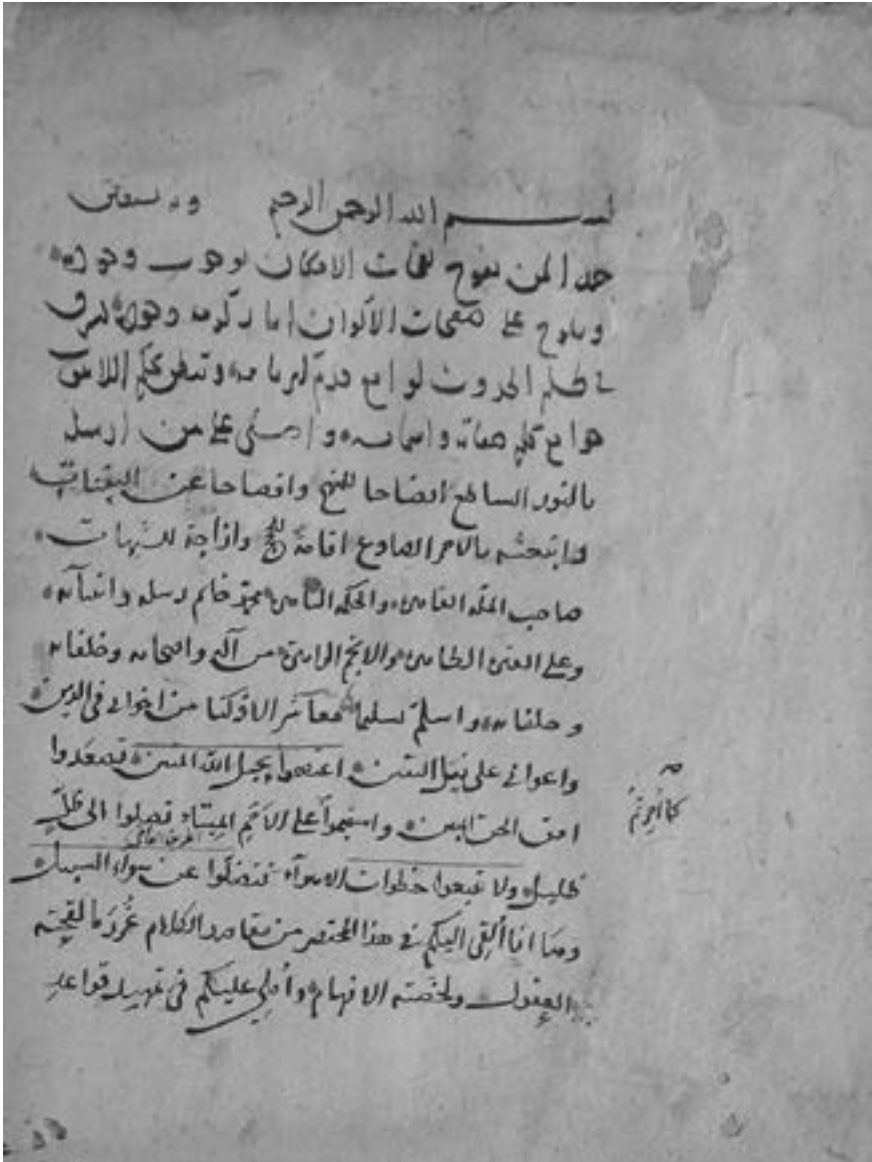 بسم الله الرحمن الرحيم وبه نستعين
حمدا لمن تفوح نفحات الامكان بوجوب وجوده
ويلوح على صفحات الاكوان
في ظلم الحدوث لوامع قدم كبريائه
جوامع كلم صفاته واسمائه واصلي على من ارسل
بالنور الساطع ايضاحا للنهج وافصاحا عن البينات
وابتعثه بالامر الصادع اقامة للحجج وازاحة للشبهات
صاحب الملة القاهرة والحكمة الباهرة محمد خاتم رسله وانبيائه
وعلى العترة الطاهرة والانجم الزاهرة من آله واصحابه وخلفائه
وحلفائه واسلم تسليما معاشر الاذكيا من اخواني في الدين
واعواني على نيل اليقين اعتصموا بحبل الله المتين فتصعدوا
افق الحق المبين واستقيموا على الميتاء فتصلوا الى ظل
ظليل ولا تتبعوا خطوات الاهوآء فتضلوا عن سواء السبيل
وها انا ألقى اليكم في هذا المختصر من مقاصد الكلام غرر ما لقحته
العقول ولخصته الافهام وأملي عليكم في تمهيد قواعد
كما أمرتم